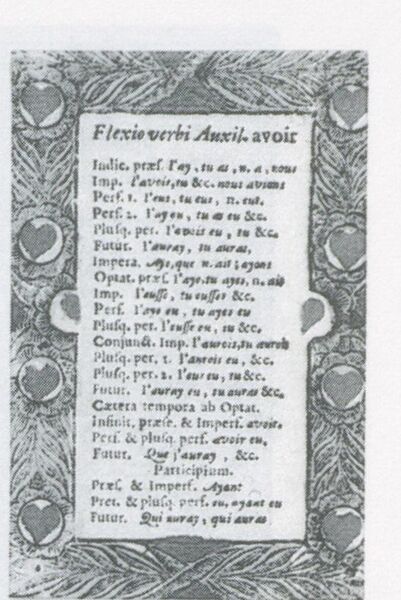 Flexio verbi Auxil. avoir
Indic. præs. I'ay, tu as, n. a, nous
Imp. I'avois, tu &c. nous avions
Perf. 1. I'eus, tu eus, n. eut.
Perf. 2. I'ay eu, tu as eu &c.
Plusq. per. I'avois eu, tu &c.
Futur. I'auray, tu auras,
Impera. Aye, que n. ait; ayons
Optat. præs. I'aye, tu ayes, n. ait
Imp. I'eusse, tu eusses &c.
Perf. I'aye eu, tu ayes eu
Plusq. per. I'eusse eu, tu &c.
Conjunct. Imp. I'aurois, tu aurois
Plusq. per. 1. I'aurois eu, &c.
Plusq. per. 2. I'eus eu, tu &c.
Futur. I'auray eu, tu auras &c.
Cætera tempora ab Optat.
Infinit. præse. & Imperf. avoir.
Perf. & plusq. perf. avoir eu.
Futur. Que j'auray, &c.
Participium.
Præs. & Imperf. Ayant
Pret. & plusq. perf. eu, ayant eu
Futur. Qui auray, qui auras